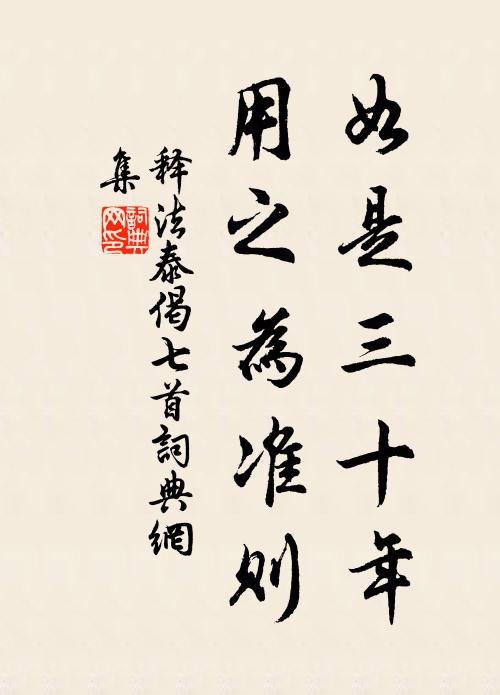 如是三十年
用之為准则
释法泰偈七首詞典網
集
詞典网印